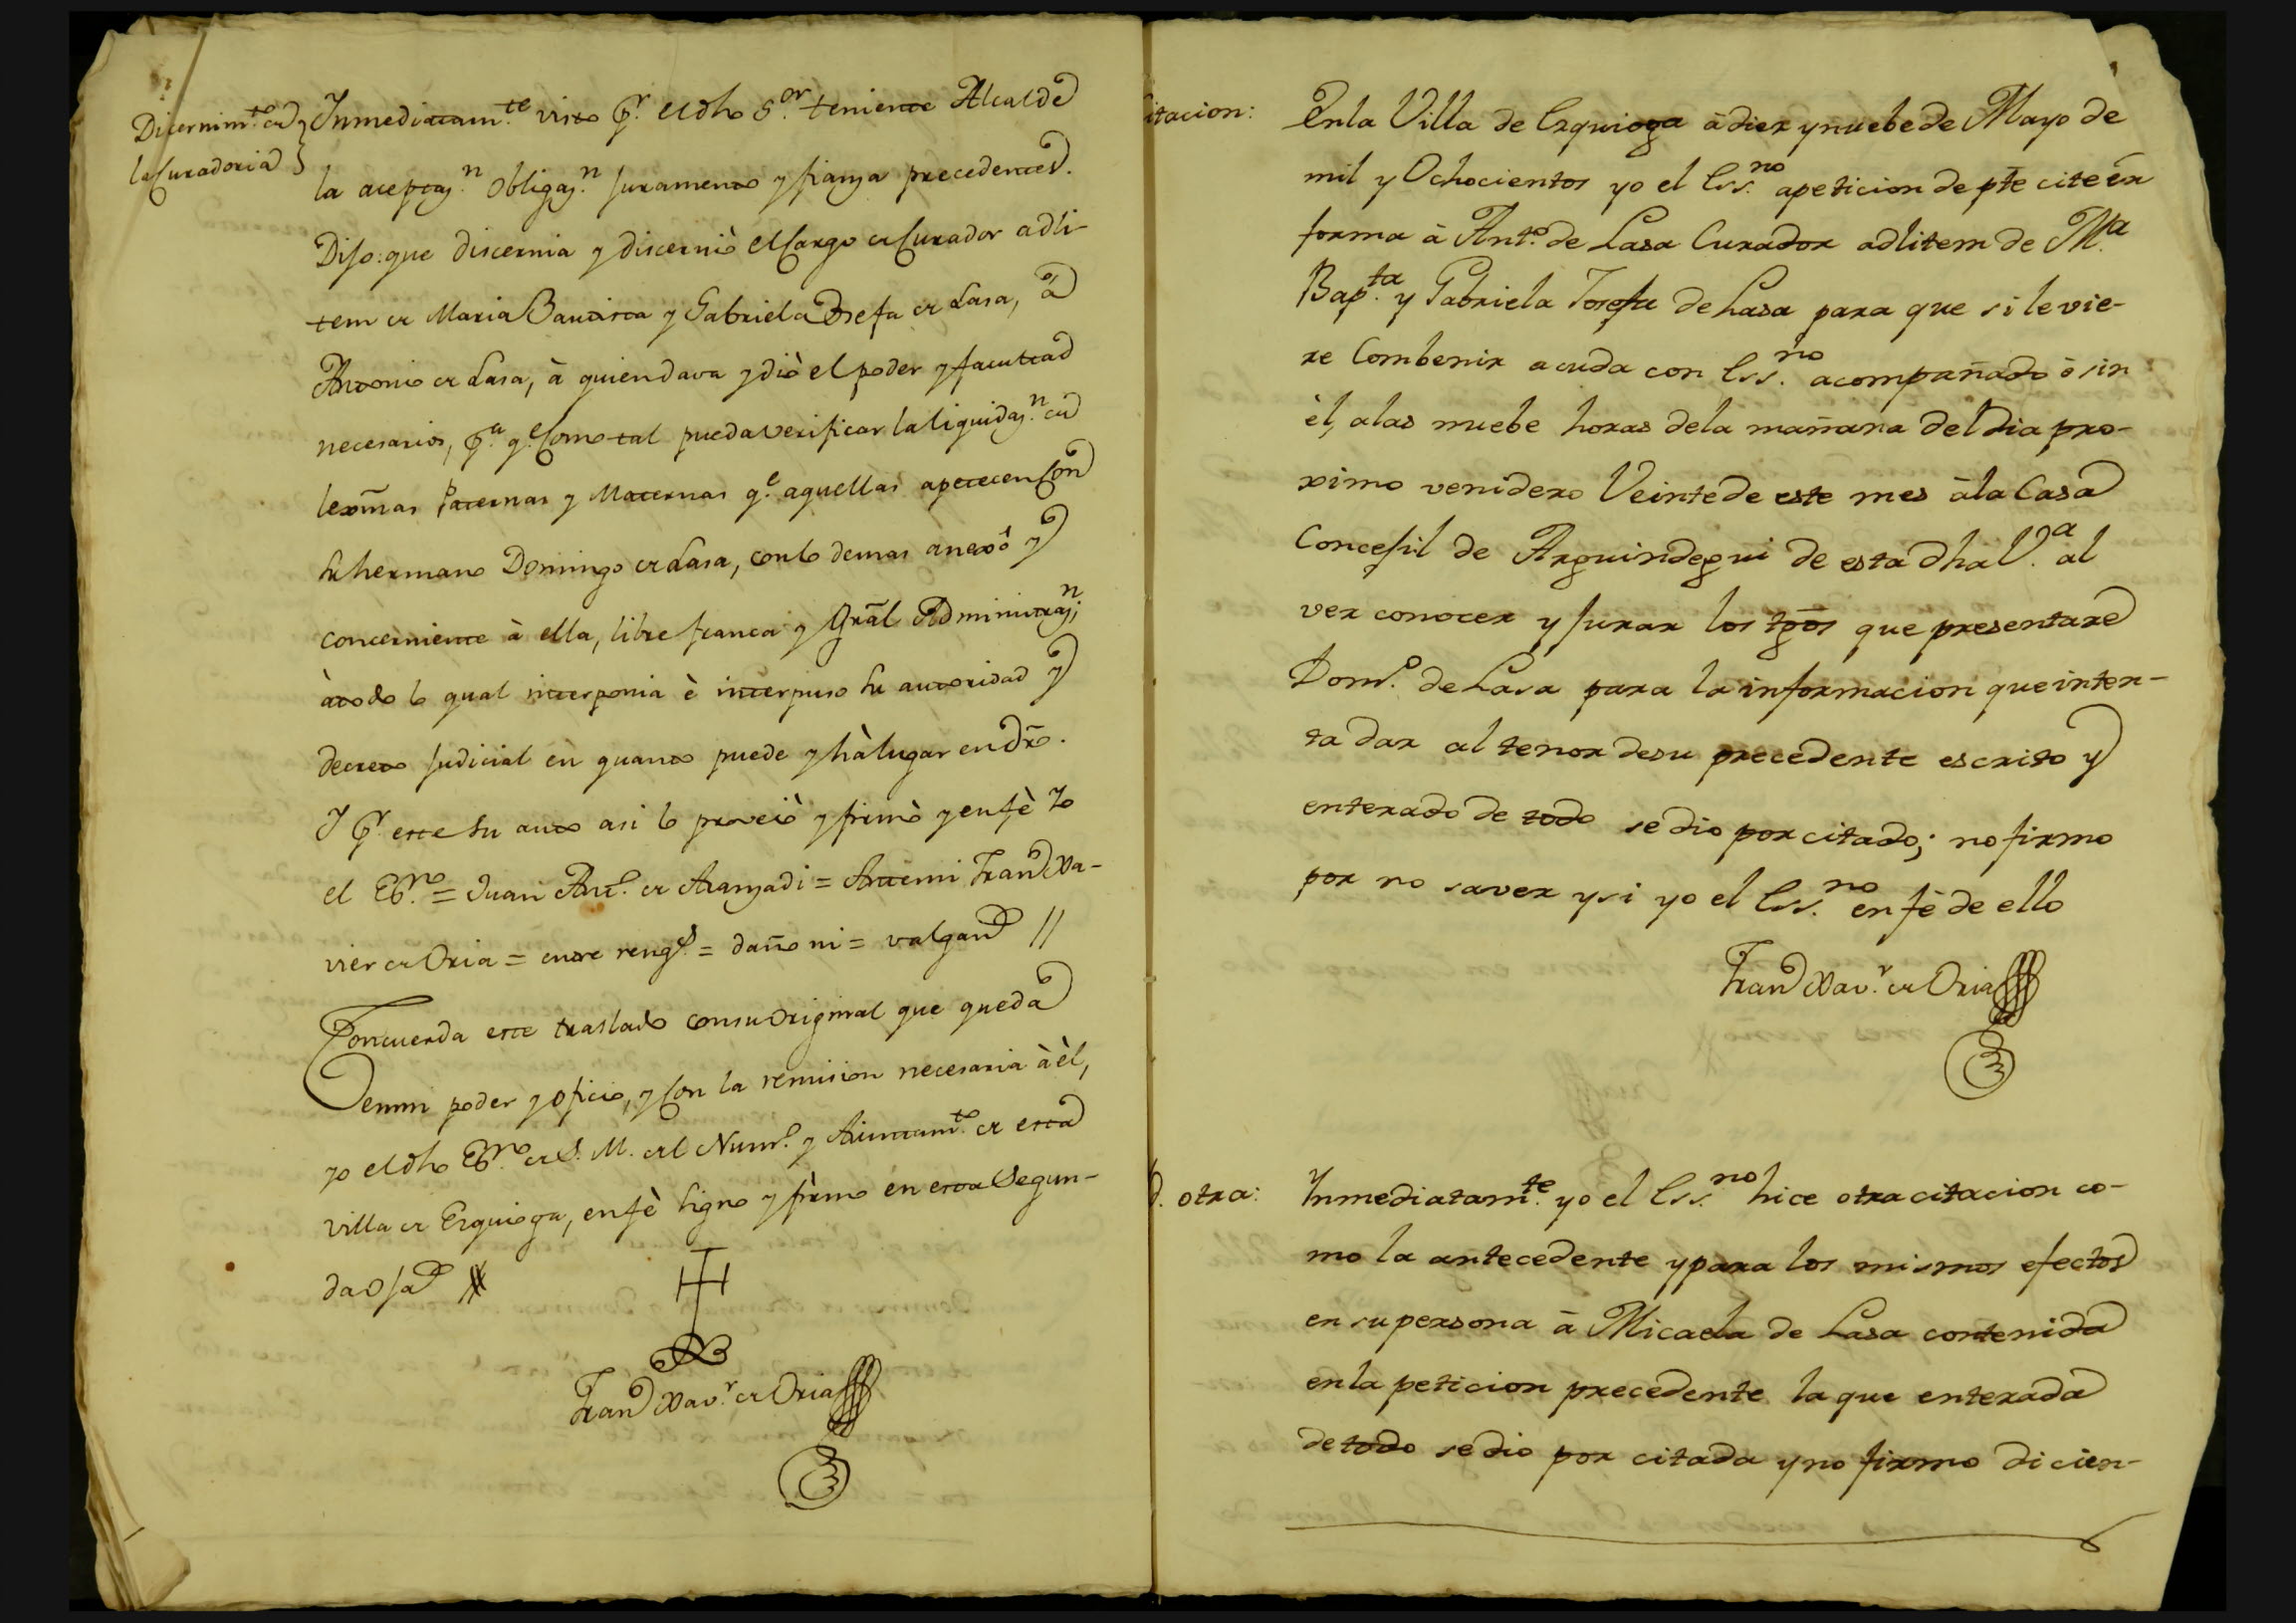 Dicernim.to de
la Curadoria
Inmediatam.te visto p.r el dho S.or teniente Alcalde
la aceptaz.n obligaz.n juramento y fianza precedentes.
Dijo: que discernia y discernió el Cargo de Curador adli-
tem de Maria Bautista y Gabriela Josefa de Lasa, à
Antonio de Lasa, à quien dava y diò el poder y facultad
necesarios, p.a q.e Como tal pueda verificar la liquidaz.n de
lexmas Paternas y Maternas q.e aquellas apetecen Con
su hermano Domingo de Lasa, con lo demas anexo y
concerniente à ella, libre franca y Gral Administraz.n;
àtodo lo qual interponia è interpuso su autoridad y
decreto judicial en quanto puede y hà lugar en dro.
Y p.r este su auto asi lo proveiò y firmò y enfè Yo
el Es.no = Juan Ant.o de Aramzadi = Antemi Fran.co Xa-
vier de Oria = entre reng.s = daño ni = valgan //
Concuerda este traslado con su Original que queda
en mi poder y oficio, y Con la remision necesaria à èl,
yo el dho Es.no de S. M. del Num.o y Aiuntam.to de esta
villa de Ezquioga, enfè signo y firmo en esta Segun-
da oja
Fran.co Xav.r de Oria
itacion:
En la Villa de Ezquioga à diez y nuebe de Mayo de
mil y Ochocientos yo el Ess.no apeticion de pte cite en
forma à Ant.o de Lasa Curador adlitem de M.a
Bap.ta y Gabriela Josefa de Lasa para que si le vie-
re Combenir acuda con Ess.no acompañado ò sin
èl, alas nuebe horas dela mañana del dia pro-
ximo venidero Veinte de este mes àla Casa
Concejil de Arguindegui de esta dha V.a al
ver conocer y jurar los tgos que presentare
Dom.o de Lasa para la informacion que inten-
ta dar al tenor desu precedente escrito y
enterado de todo se dio por citado; no firmo
por no saver y si yo el Ess.no en fè de ello
Fran.co Xav.r de Oria
otra:
Inmediatam.te yo el Ess.no hice otra citacion co-
mo la antecedente y para los mismos efectos
en su persona à Micaela de Lasa contenida
en la peticion precedente la que enterada
de todo se dio por citada y no firmo dicien-